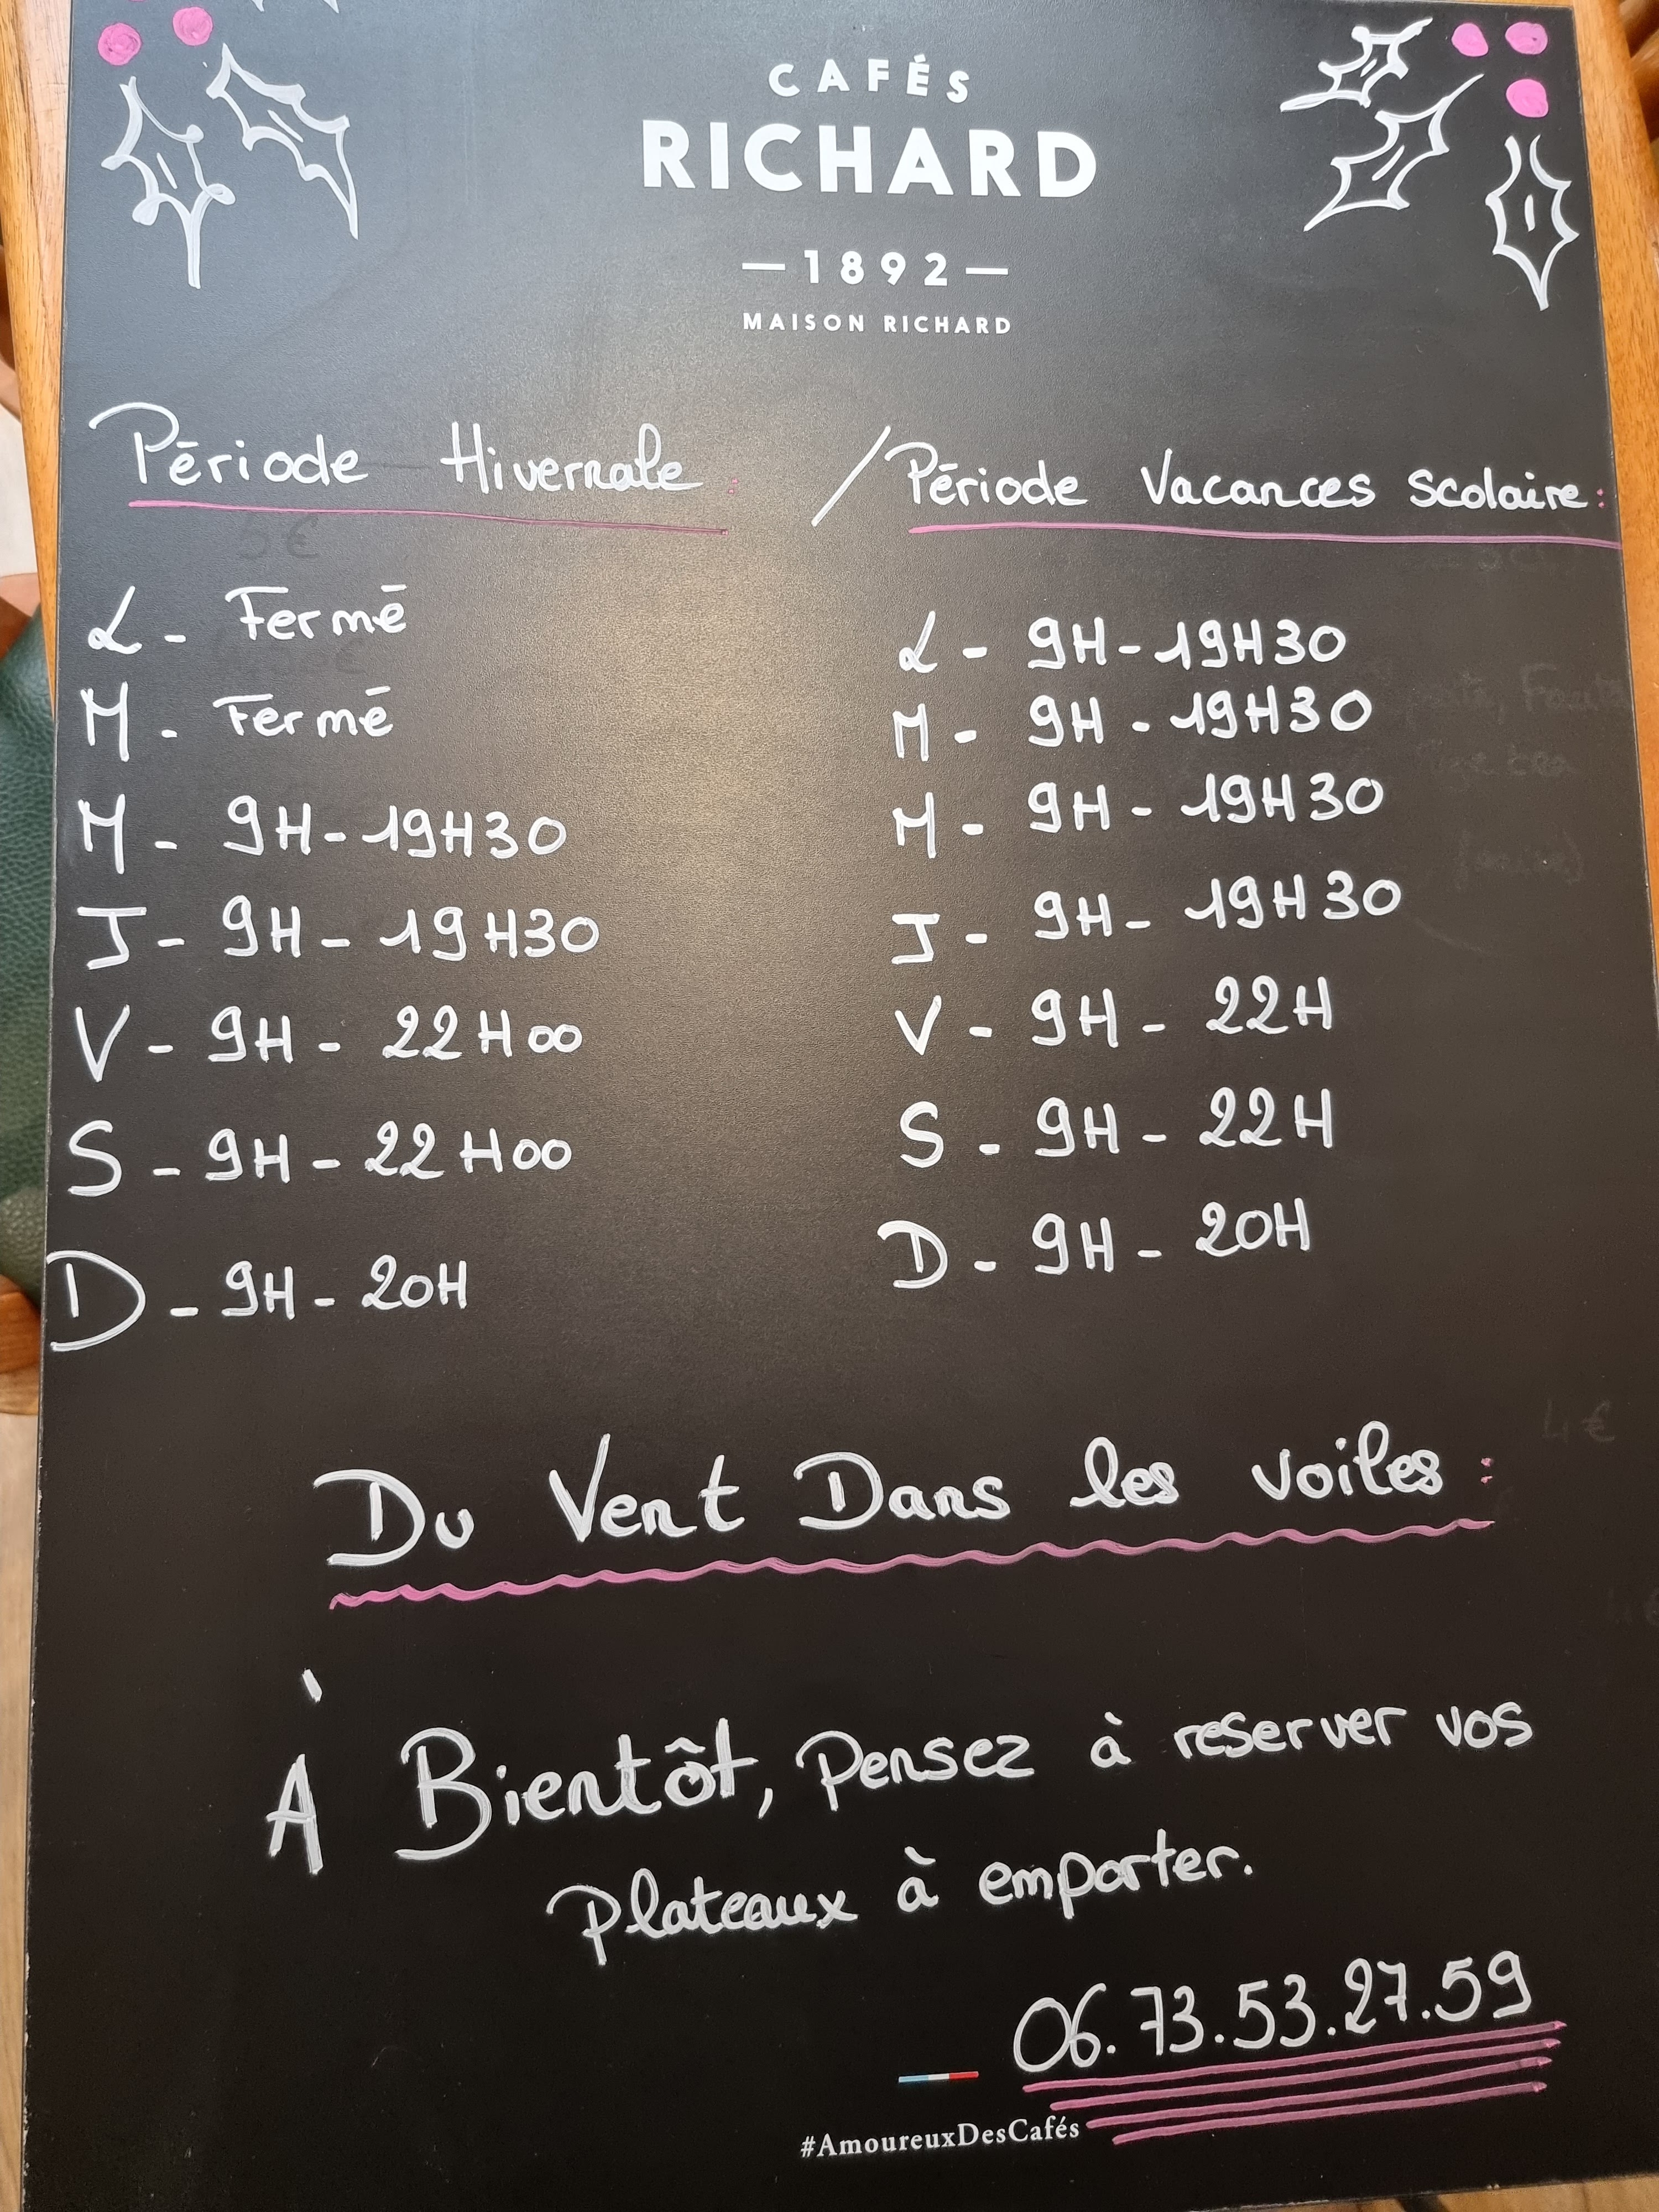 CAFÉS
RICHARD
— 1892 —
MAISON RICHARD
Période Hivernale : / Période Vacances Scolaire :
L - Fermé
M - Fermé
M - 9H - 19H30
J - 9H - 19H30
V - 9H - 22H00
S - 9H - 22H00
D - 9H - 20H
L - 9H - 19H30
M - 9H - 19H30
M - 9H - 19H30
J - 9H - 19H30
V - 9H - 22H
S - 9H - 22H
D - 9H - 20H
Du Vent Dans les voiles :
À Bientôt, Pensez à reserver vos
Plateaux à emporter.
06.73.53.27.59
#AmoureuxDesCafés
5€
4€